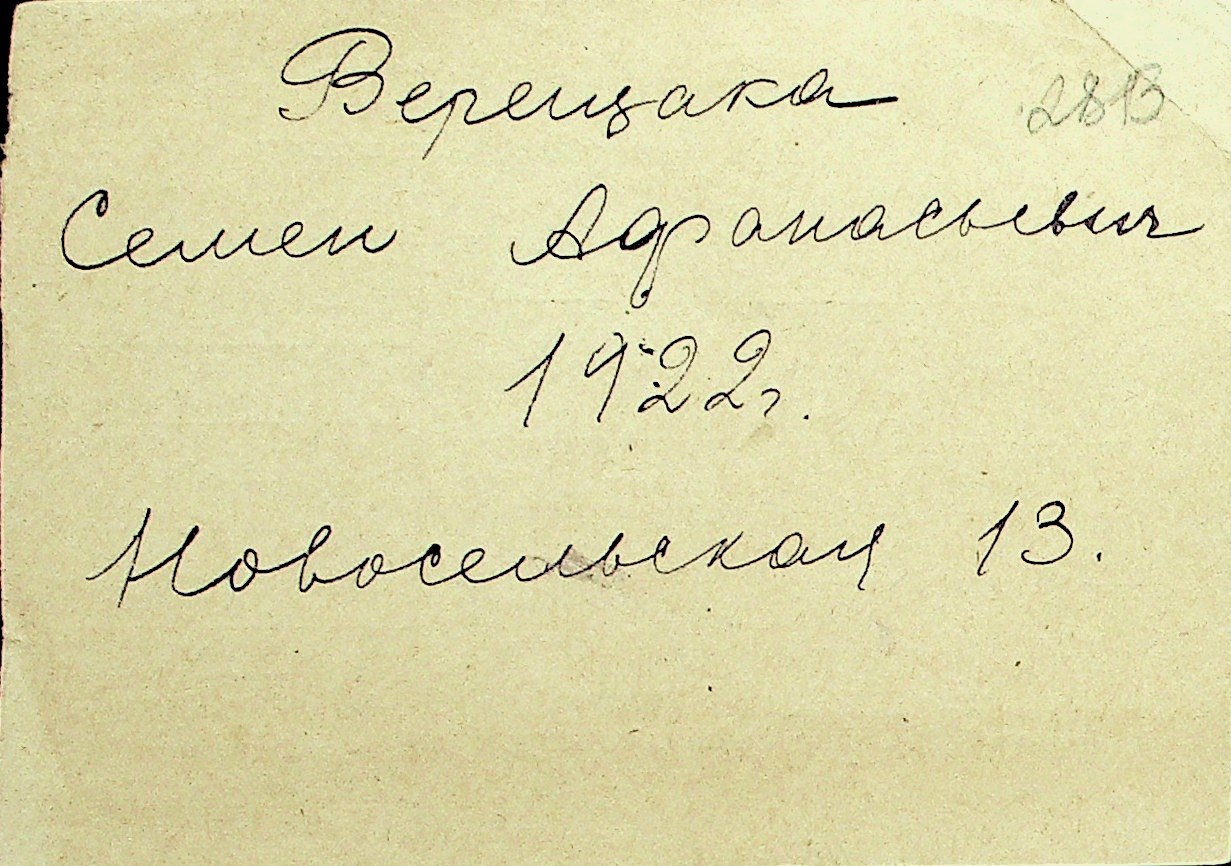 Верещака 2813
Семен Афанасьевич
1922г.
Новосельская 13.